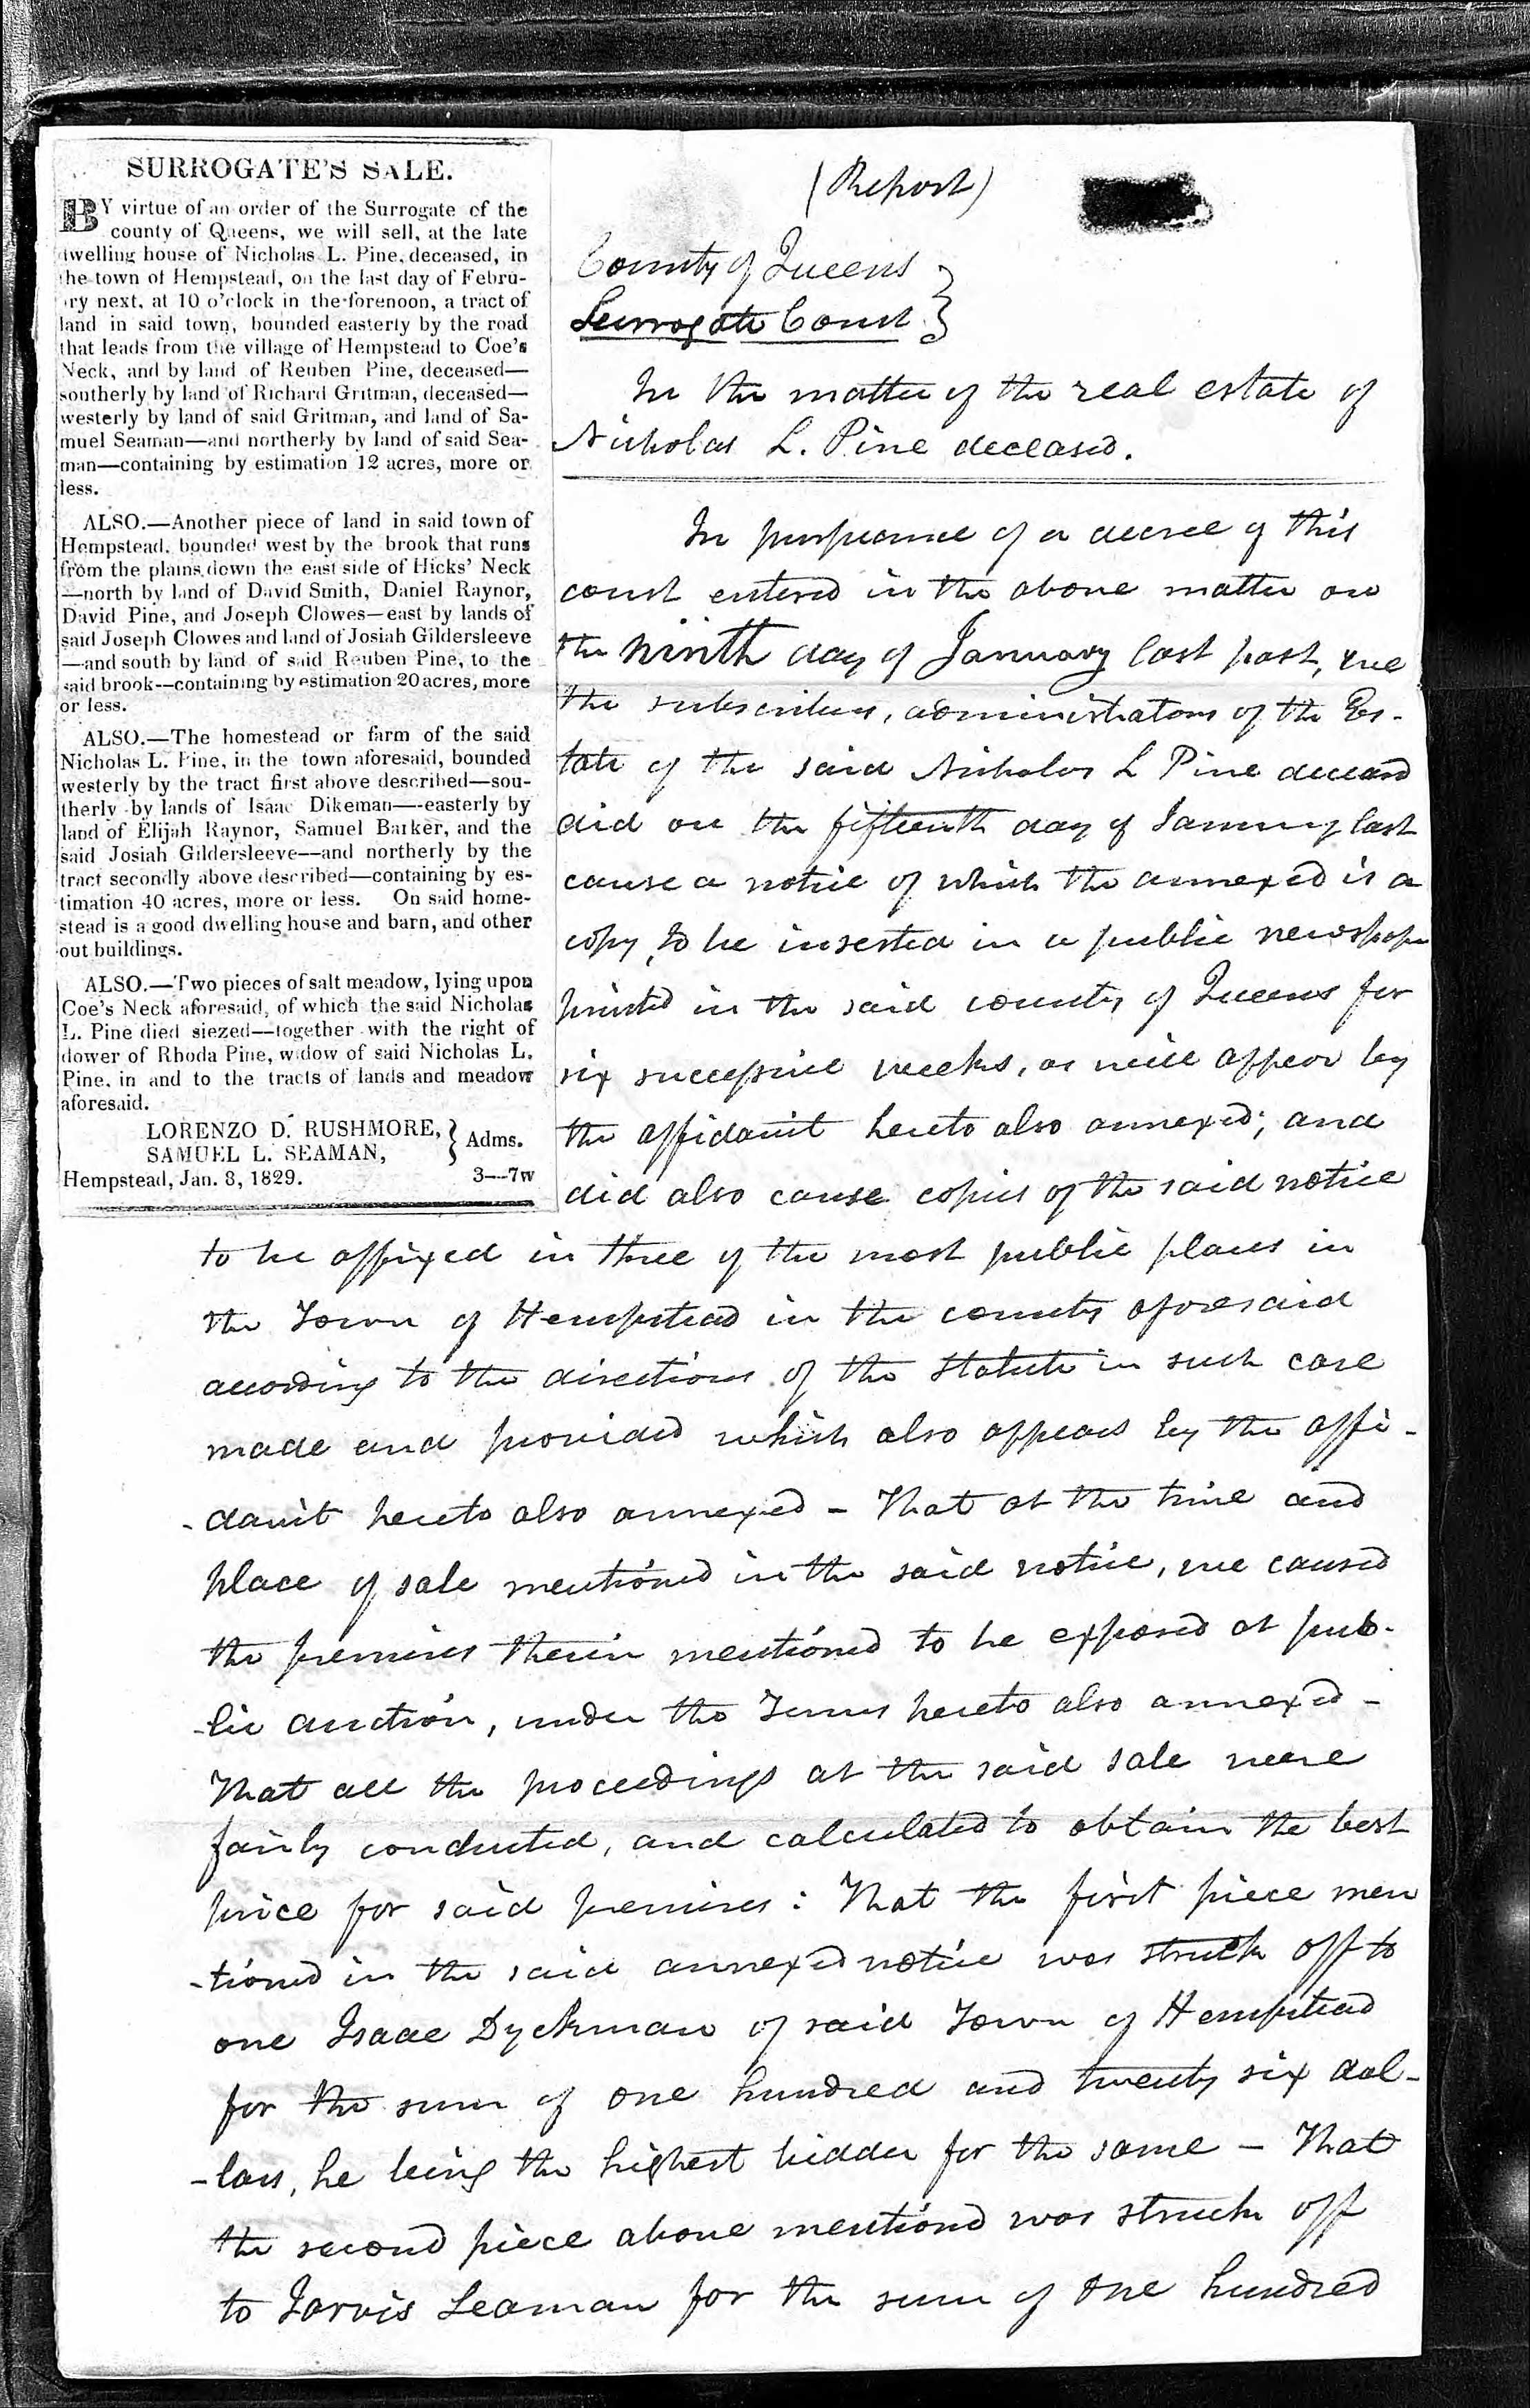 SURROGATE'S SALE.
BY virtue of an order of the Surrogate of the
county of Queens, we will sell, at the late
dwelling house of Nicholas L. Pine, deceased, in
the town of Hempstead, on the last day of Febru-
ary next, at 10 o'clock in the forenoon, a tract of
land in said town, bounded easterly by the road
that leads from the village of Hempstead to Coe's
Neck, and by land of Reuben Pine, deceased—
southerly by land of Richard Gritman, deceased—
westerly by land of said Gritman, and land of Sa-
muel Seaman—and northerly by land of said Sea-
man—containing by estimation 12 acres, more or
less.
ALSO.—Another piece of land in said town of
Hempstead, bounded west by the brook that runs
from the plains down the east side of Hicks' Neck
—north by land of David Smith, Daniel Raynor,
David Pine, and Joseph Clowes—east by lands of
said Joseph Clowes and land of Josiah Gildersleeve
—and south by land of said Reuben Pine, to the
said brook—containing by estimation 20 acres, more
or less.
ALSO.—The homestead or farm of the said
Nicholas L. Pine, in the town aforesaid, bounded
westerly by the tract first above described—sou-
therly by lands of Isaac Dikeman—easterly by
land of Elijah Raynor, Samuel Barker, and the
said Josiah Gildersleeve—and northerly by the
tract secondly above described—containing by es-
timation 40 acres, more or less. On said home-
stead is a good dwelling house and barn, and other
out buildings.
ALSO.—Two pieces of salt meadow, lying upon
Coe's Neck aforesaid, of which the said Nicholas
L. Pine died siezed—together with the right of
dower of Rhoda Pine, widow of said Nicholas L.
Pine, in and to the tracts of lands and meadow
aforesaid.
LORENZO D. RUSHMORE, } Adms.
SAMUEL L. SEAMAN,
Hempstead, Jan. 8, 1829. 3—7w
(Report)
County of Queens }
Surrogate Court }
In the matter of the real estate of
Nicholas L. Pine deceased.
In pursuance of a decree of this
court entered in the above matter on
the ninth day of January last past, we
the subscribers, administrators of the Es-
tate of the said Nicholas L Pine deceasd
did on the fifteenth day of January last
cause a notice of which the annexed is a
copy, to be inserted in a public newspaper
printed in the said county of Queens for
six successive weeks, as will appear by
the affidavit hereto also annexed; and
did also cause copies of the said notice
to be affixed in three of the most public places in
the Town of Hempstead in the county aforesaid
according to the directions of the Statute in such case
made and provided which also appears by the affi-
-davit hereto also annexed - That at the time and
place of sale mentioned in the said notice, we caused
the premises therein mentioned to be exposed at pub-
-lic auction, under the Terms hereto also annexed -
That all the proceedings at the said sale were
fairly conducted, and calculated to obtain the best
price for said premises: That the first piece men
-tioned in the said annexed notice was struck off to
one Isaac Dyckman of said Town of Hempstead
for the sum of one hundred and twenty six dol-
-lars, he being the highest bidder for the same - That
the second piece above mentioned was struck off
to Jarvis Seaman for the sum of one hundred